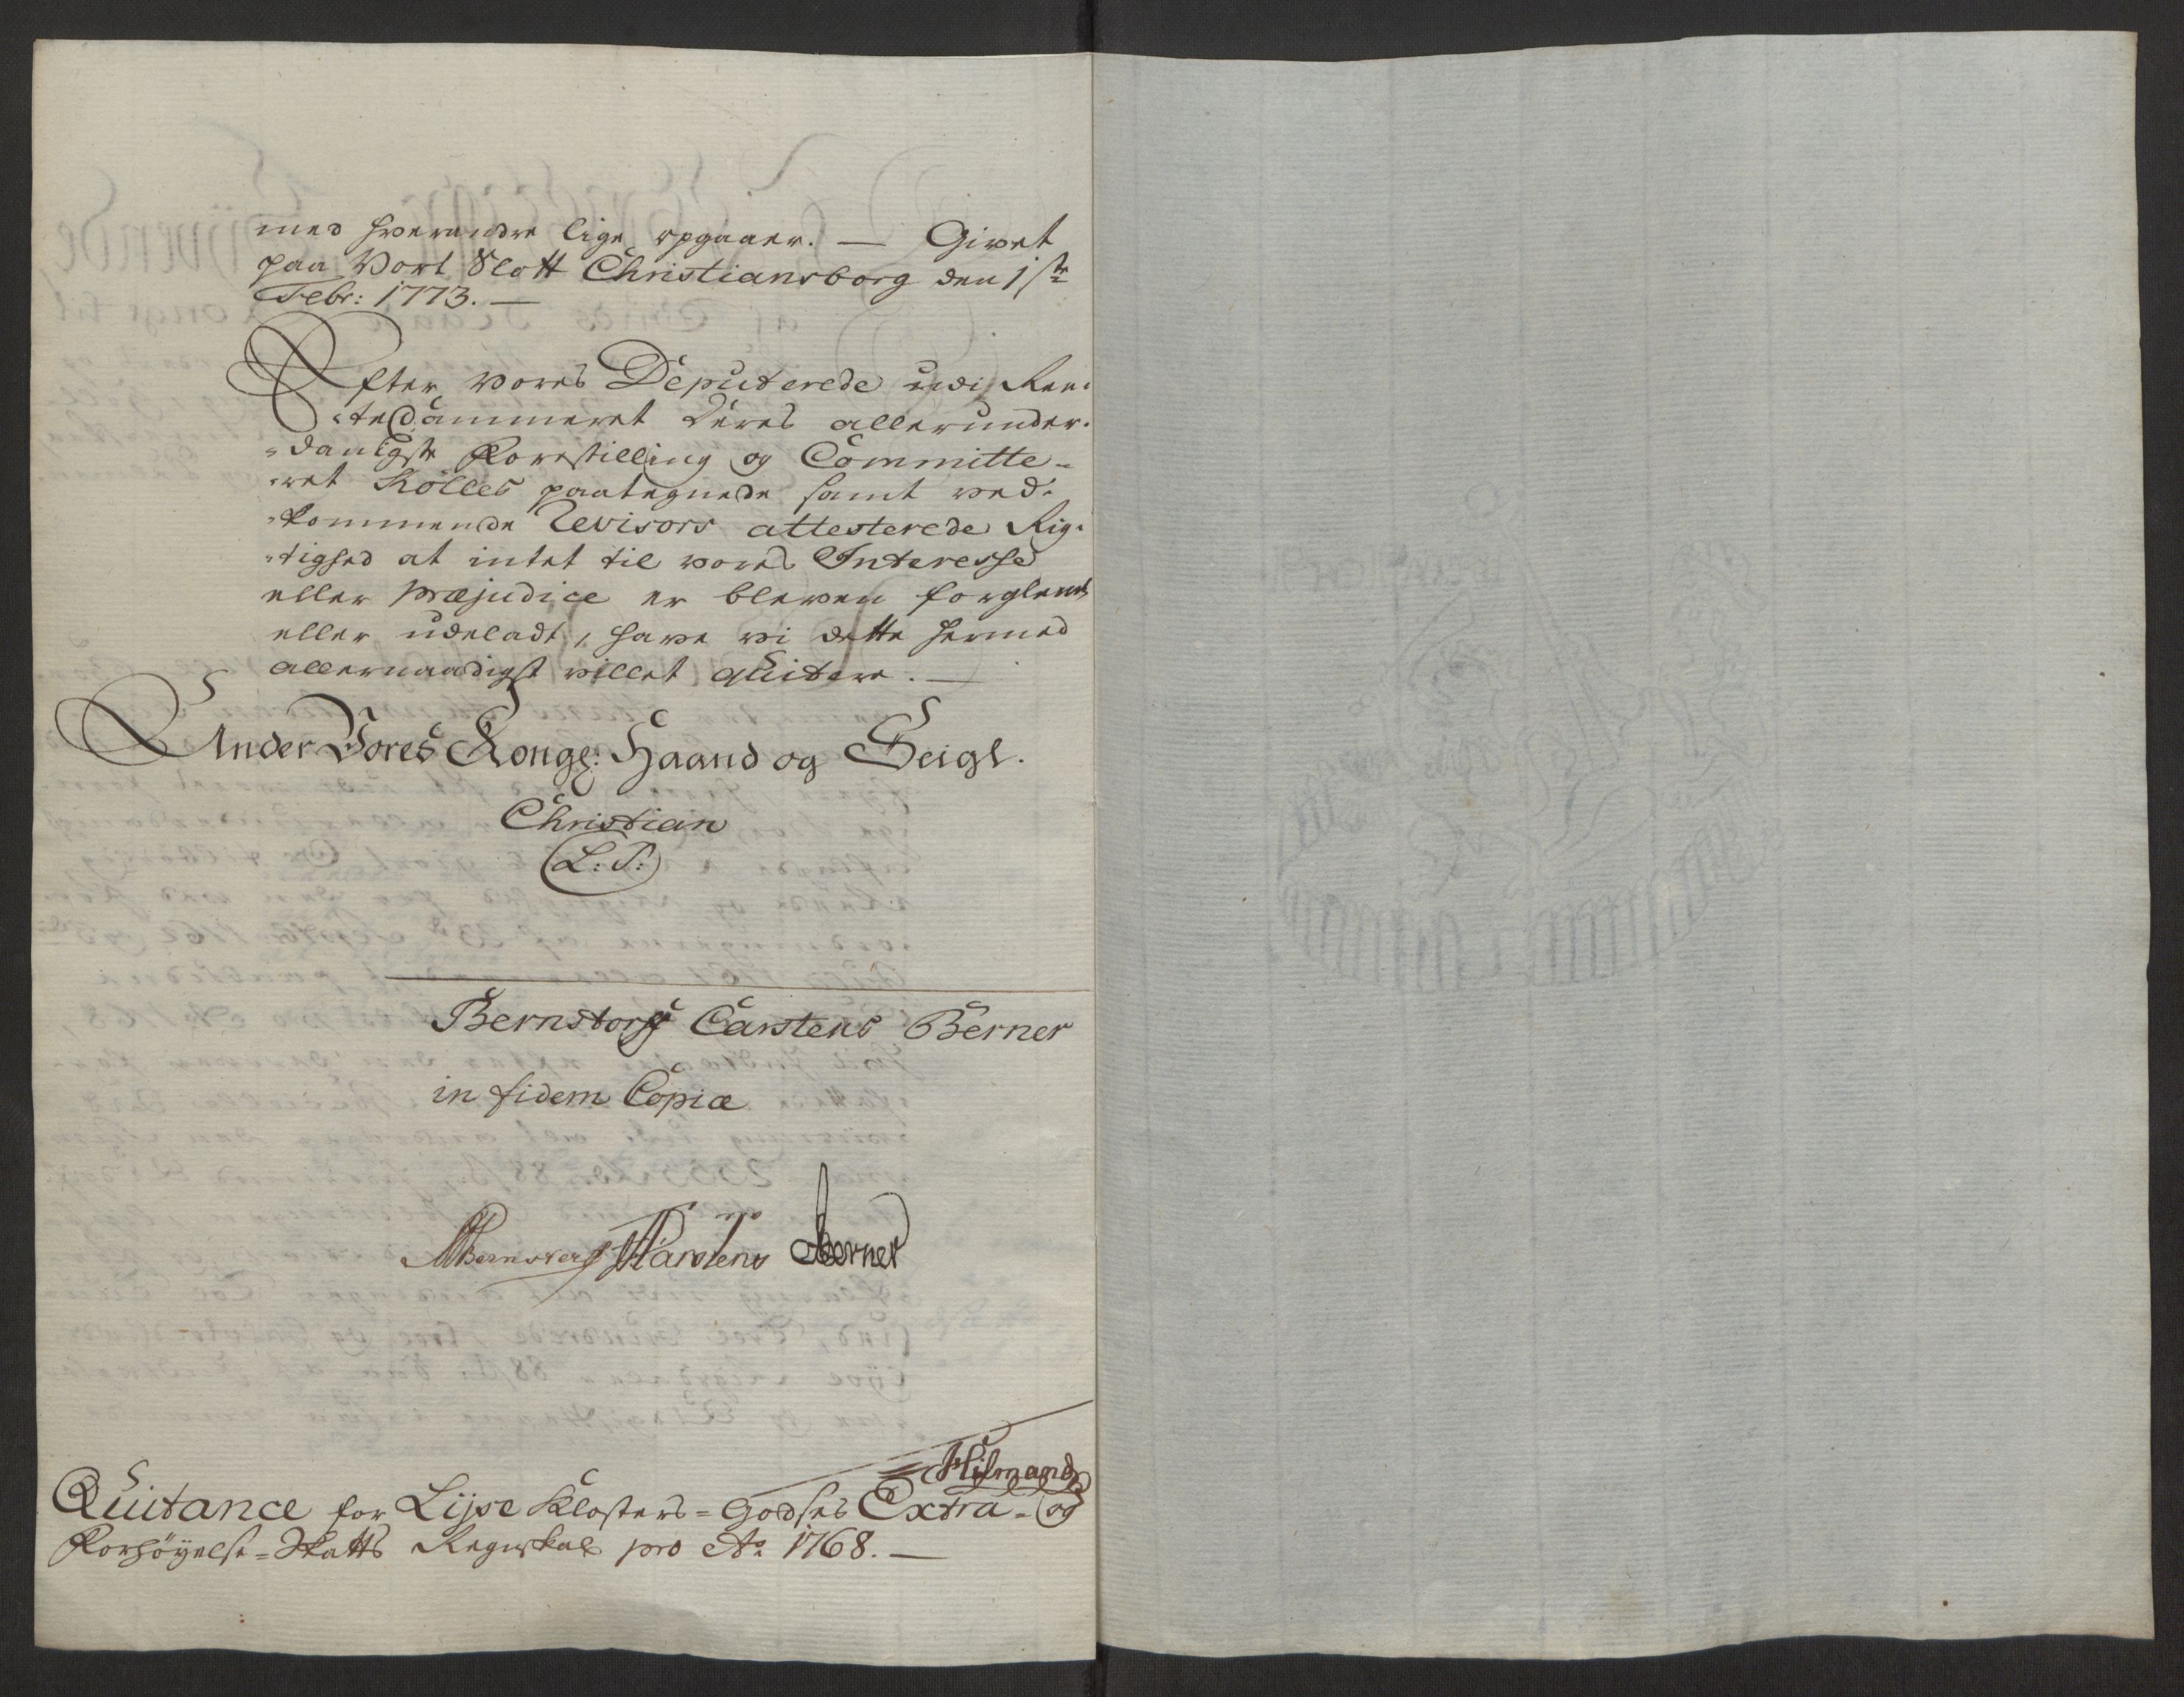 med hverandre lige opgaaer. — Givet
paa Vort Slott Christiansborg den 1ste
Febr: 1773. —
Efter vores Deputerede udi Ren-
-te Cammeret deres allerunder-
-danigste Forestilling og Committe-
-ret Kölles paategnede samt ved-
-kommende Revisors attesterede Rig-
-tighed at intet til vores Interesse
eller præjudice er bleven forglemt
eller udeladt, have vi dette hermed
allernaadigst villet qvitere. —
Under Vores Kongl: Haand og Seigl.
Christian
(L: S:)
Bernstorff Carstens Berner
in fidem Copiæ
Bernstorff Carstens Berner
Hilmand
Quitance for Lyse Klosters-Godses Extra- og
Forhöyelse-Skatts Regnskab pro Ao 1768. —